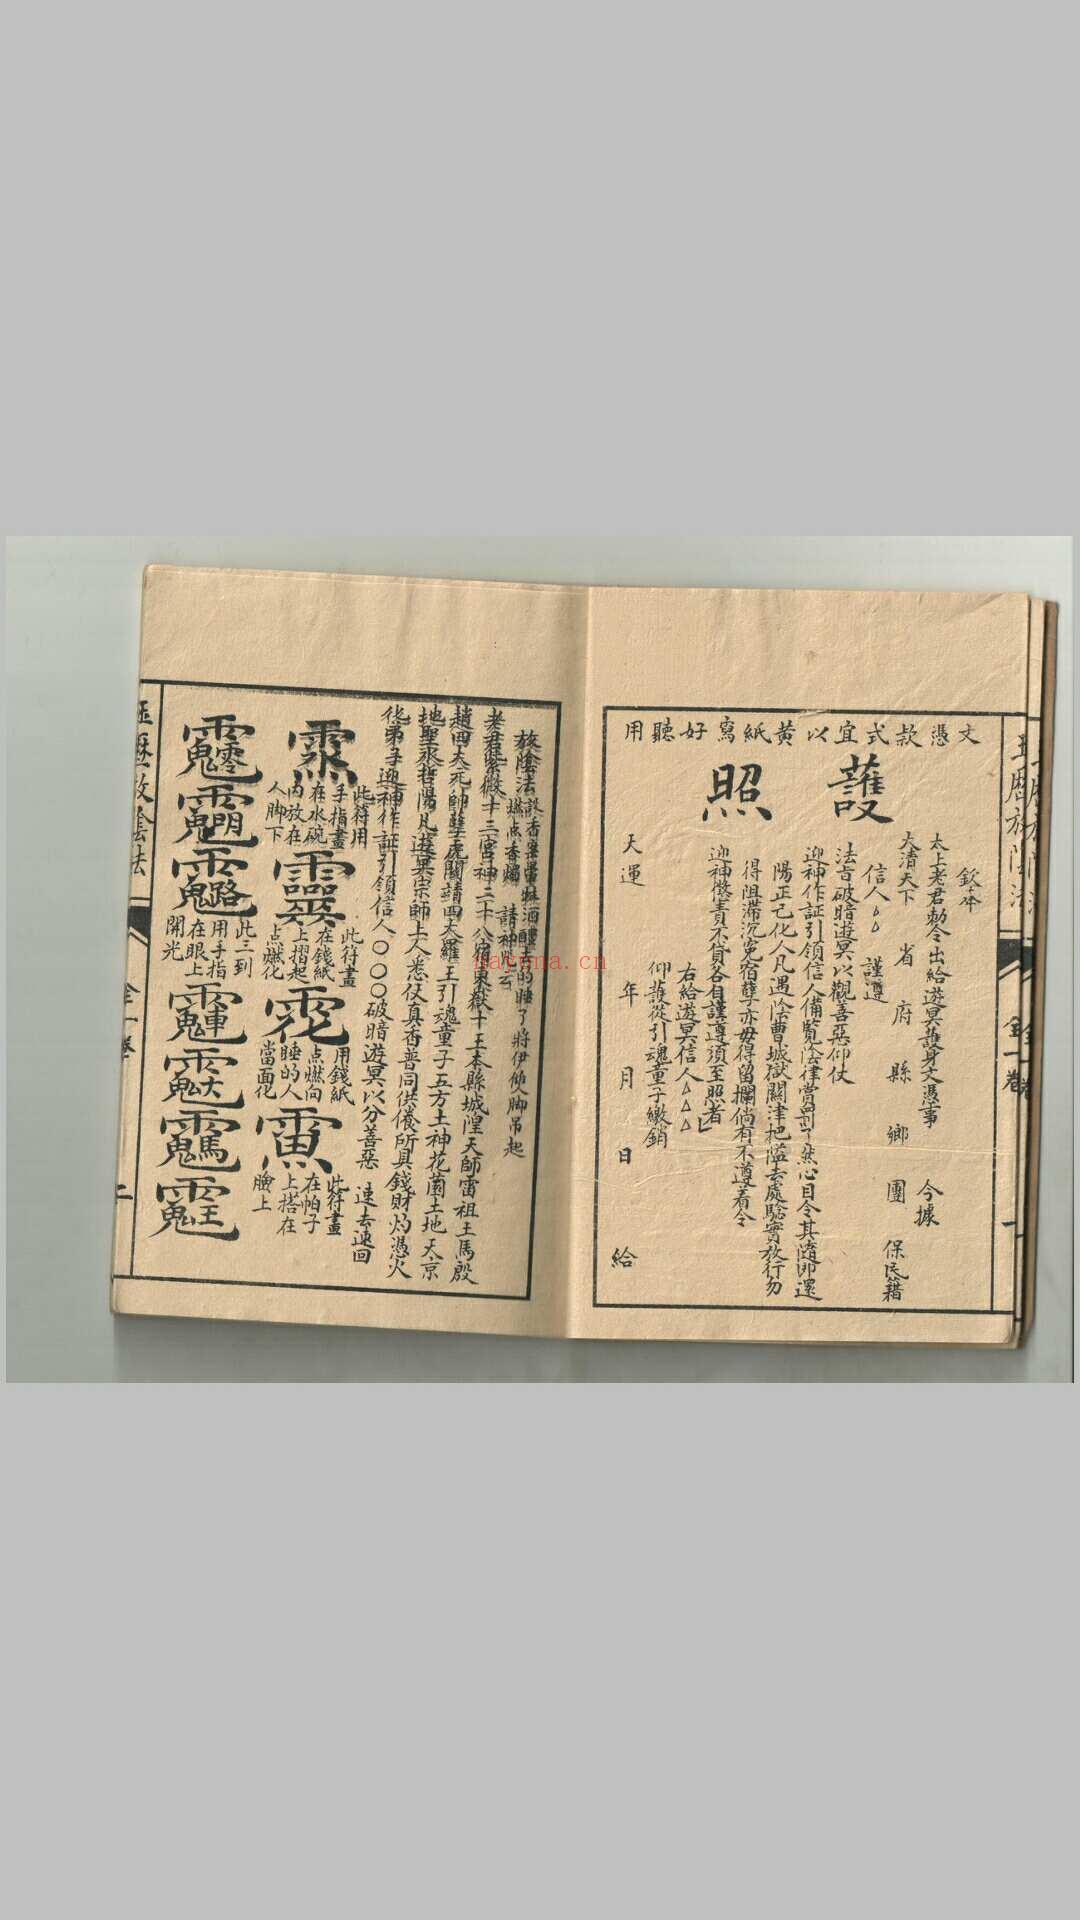 文憑款式宜以黄紙寫好聽用
護照
欽奉
太上老君勅令出給遊冥護身文憑事 今據
大清天下 省 府 縣 鄉 團 保民籍
信人 謹遵
法旨破暗遊冥以觀善惡仰仗
迎神作証引領信人備覧陰律賞罰了然心目令其隨即還
陽正己化人凡遇陰曹城獄關津把隘去處騐實放行勿
得阻滯沉寃宿孽亦毋得留攔倘有不遵着令
迎神懲責不貸各自謹遵須至照者
右給遊冥信人△△△
仰護從引魂童子繳銷
天運 年 月 日 給
全一卷
放陰法
燃点香燭 請神咒云
老君紫微十三宫神二十八宿東嶽十王本縣城隍天師雷祖王馬殷
趙四大元帥 四大羅王引魂童子五方土神花園土地天京
地聖衆哲陽凡遊冥宗師上人悉仗真香普同供養所具錢財灼憑火
化弟子迎神作証引領信人〇〇〇破暗遊冥以分善惡 速去速回
此符用
手指畫
在水碗
内放在
人脚下
此符畫
在錢紙
上摺起
点燃化
用錢紙
点燃向
睡的人
當面化
此符畫
在帕子
上搭在
臉上
此三到
用手指
在眼上
開光
全一卷
二
nayona.cn